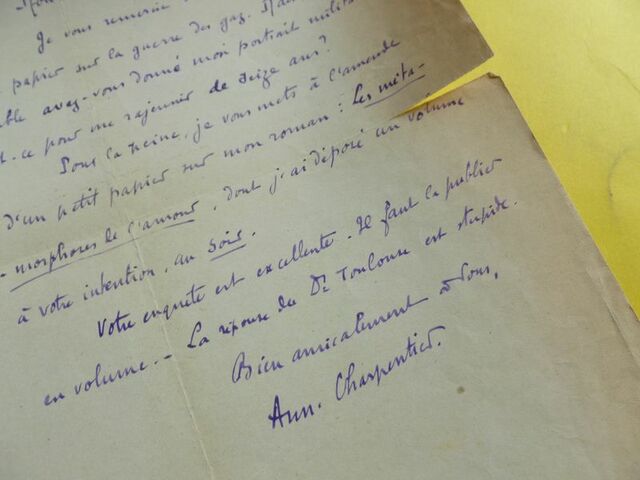 Je vous remercie
papier sur la guerre des gaz.
avez-vous donné mon portrait milita
-ce pour me rajeunir de seize ans?
Pour la peine, je vous mets à l'amende
d'un petit papier sur mon roman: Les méta-
-morphoses de l'amour, dont j'ai déposé un volume
à votre intention, au Soir.
Votre enquête est excellente. Il faut la publier
en volume. - La réponse du Dr Toulouse est stupide.
Bien amicalement à vous,
Arm. Charpentier.